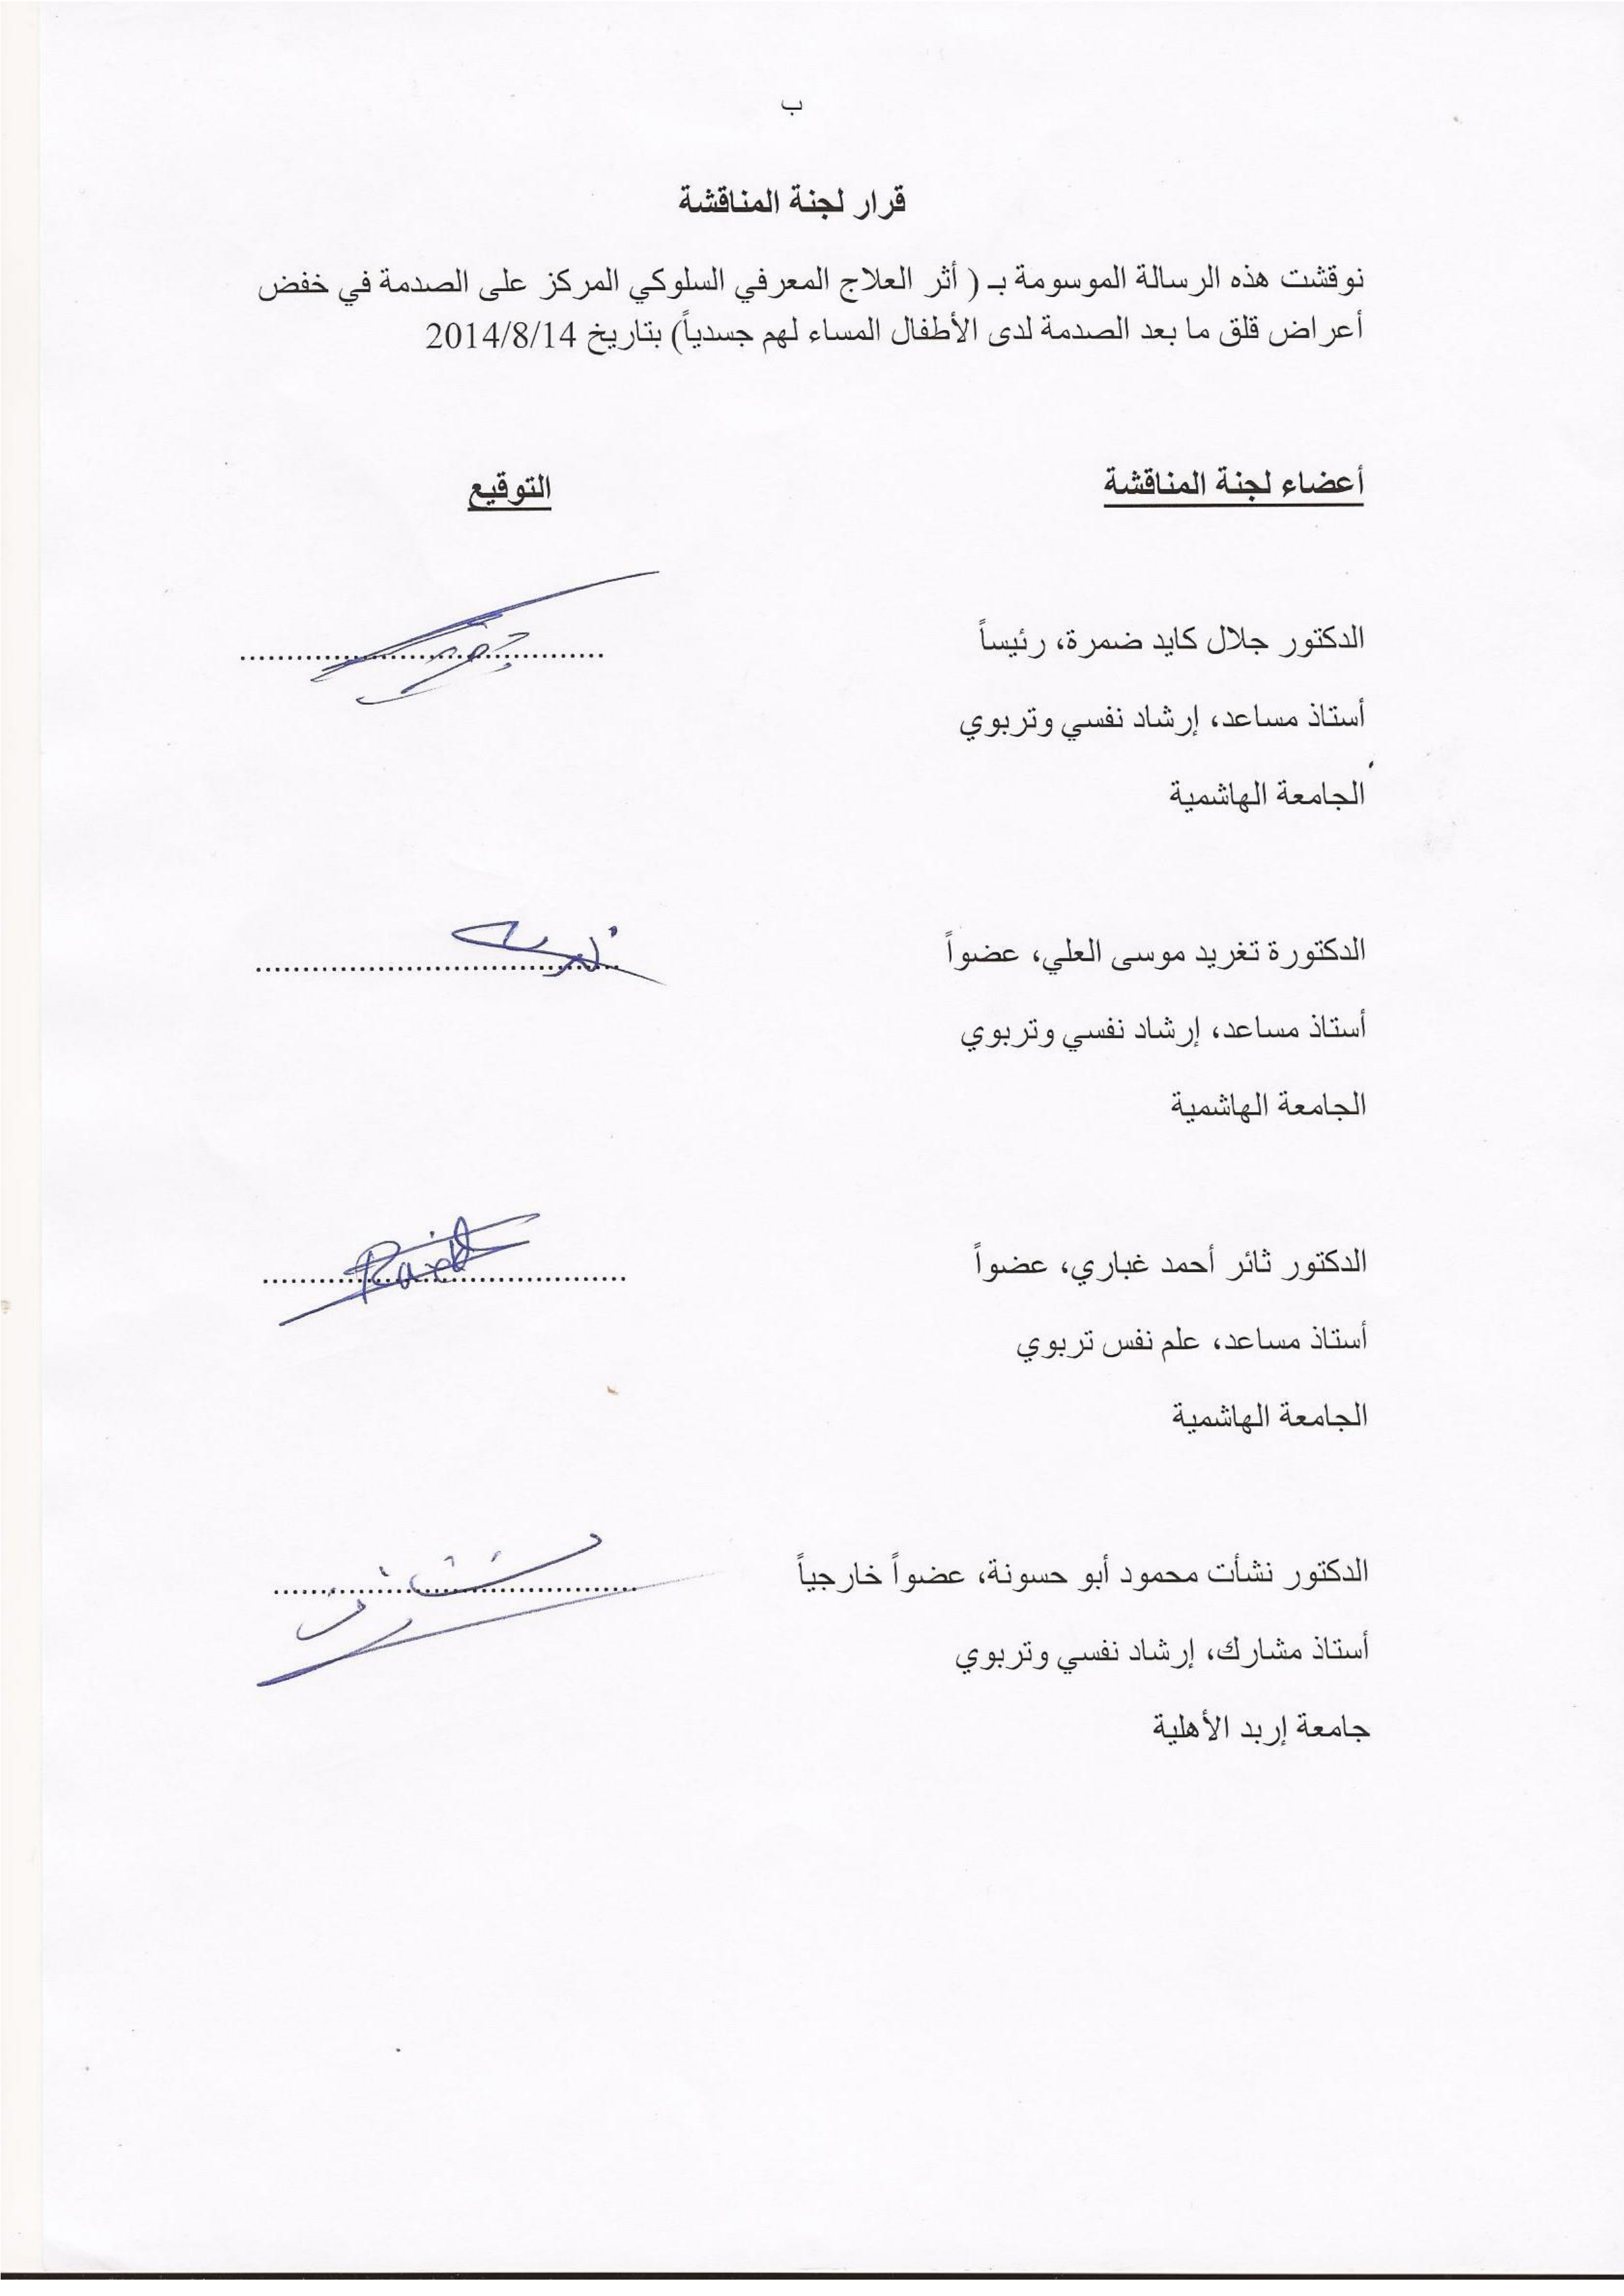 ب
قرار لجنة المناقشة
نوقشت هذه الرسالة الموسومة بـ ( أثر العلاج المعرفي السلوكي المركز على الصدمة في خفض
أعراض قلق ما بعد الصدمة لدى الأطفال المساء لهم جسدياً) بتاريخ 2014/8/14
أعضاء لجنة المناقشة
التوقيع
الدكتور جلال كايد ضمرة، رئيساً
أستاذ مساعد، إرشاد نفسي وتربوي
الجامعة الهاشمية
الدكتورة تغريد موسى العلي، عضواً
أستاذ مساعد، إرشاد نفسي وتربوي
الجامعة الهاشمية
الدكتور ثائر أحمد غباري، عضواً
أستاذ مساعد، علم نفس تربوي
الجامعة الهاشمية
الدكتور نشأت محمود أبو حسونة، عضواً خارجياً
أستاذ مشارك، إرشاد نفسي وتربوي
جامعة إربد الأهلية